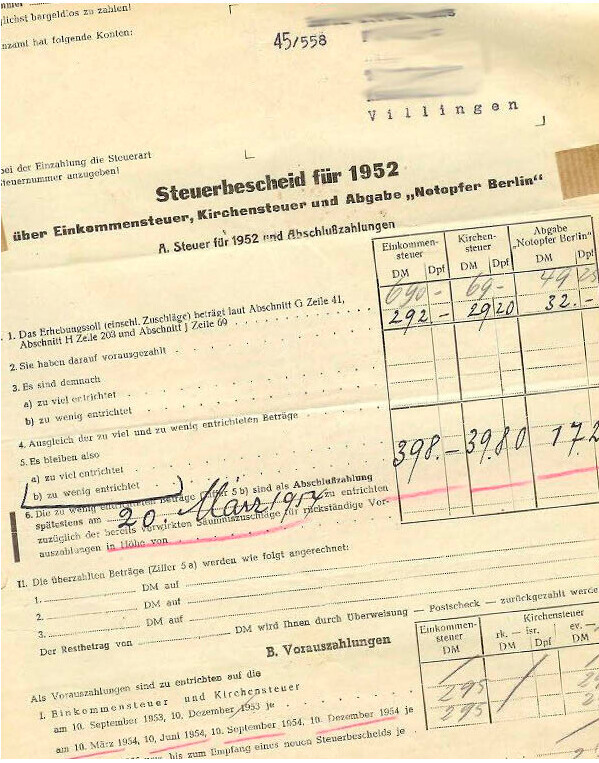 glichst bargeldlos zu zahlen!
nzamt hat folgende Konten:
45/558
Villingen
bei der Einzahlung die Steuerart
teuernummer anzugeben!
Steuerbescheid für 1952
über Einkommensteuer, Kirchensteuer und Abgabe „Notopfer Berlin“
A. Steuer für 1952 und Abschlußzahlungen
Einkommen-steuer Kirchen-steuer Abgabe „Notopfer Berlin“
DM Dpf DM Dpf DM Dpf
1. Das Erhebungssoll (einschl. Zuschläge) beträgt laut Abschnitt G Zeile 41, 690 - 69 - 49 25
Abschnitt H Zeile 203 und Abschnitt J Zeile 69 292 - 29 20 32 -
2. Sie haben darauf vorausgezahlt
3. Es sind demnach
a) zu viel entrichtet
b) zu wenig entrichtet
4. Ausgleich der zu viel und zu wenig entrichteten Beträge
5. Es bleiben also
a) zu viel entrichtet
b) zu wenig entrichtet 398.- 39.80 172
6. Die zu wenig entrichteten Beträge (Ziffer 5 b) sind als Abschlußzahlung
spätestens am 20. März 1954 zu entrichten
zuzüglich der bereits verwirkten Säumniszuschläge für rückständige Vor-
auszahlungen in Höhe von
II. Die überzahlten Beträge (Ziffer 5 a) werden wie folgt angerechnet:
1. DM auf
2. DM auf
3. DM auf
Der Restbetrag von DM wird Ihnen durch Überweisung — Postscheck — zurückgezahlt werde
B. Vorauszahlungen
Einkommen-steuer Kirchensteuer
rk. — isr. ev. —
DM DM Dpf DM
Als Vorauszahlungen sind zu entrichten auf die
I. Einkommensteuer und Kirchensteuer
am 10. September 1953, 10. Dezember 1953 je 295
am 10. März 1954, 10. Juni 1954, 10. September 1954, 10. Dezember 1954 je 295
bis zum Empfang eines neuen Steuerbescheids je